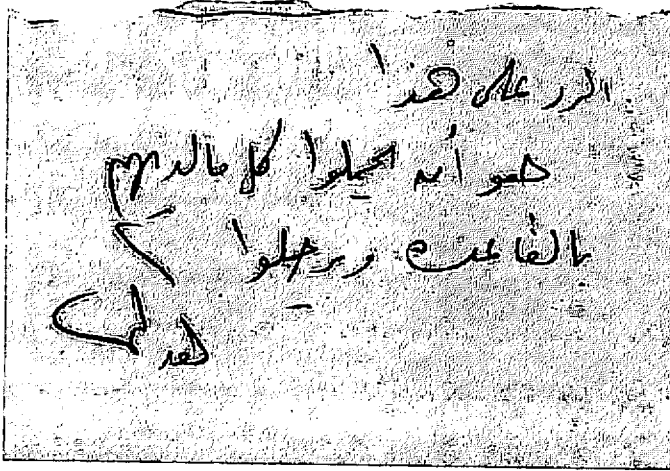 الرد على هذا
هو أنه يحملوا كل ما لديهم
بالقاعده ويرحلوا